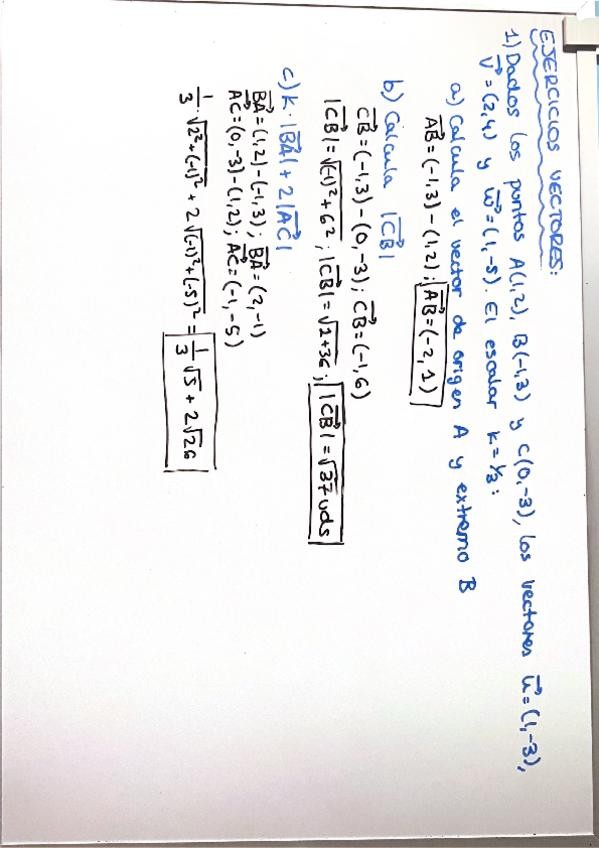 EJERCICIOS VECTORES:
1) Dados los puntos A(1,2), B(-1,3) y C(0,-3), los vectores u⃗=(1,-3),
v⃗=(2,4) y w⃗=(1,-5). El escalar k=1/3:
a) Calcula el vector de origen A y extremo B
AB⃗=(-1,3)-(1,2); AB⃗=(-2,1)
b) Calcula |CB⃗|
CB⃗=(-1,3)-(0,-3); CB⃗=(-1,6)
|CB⃗|=√(-1)²+6²; |CB⃗|=√1+36; |CB⃗|=√37 uds
c) k·|BA⃗|+2|AC⃗|
BA⃗=(1,2)-(-1,3); BA⃗=(2,-1)
AC⃗=(0,-3)-(1,2); AC⃗=(-1,-5)
1/3·√2²+(-1)² + 2√(-1)²+(-5)² = 1/3√5 + 2√26